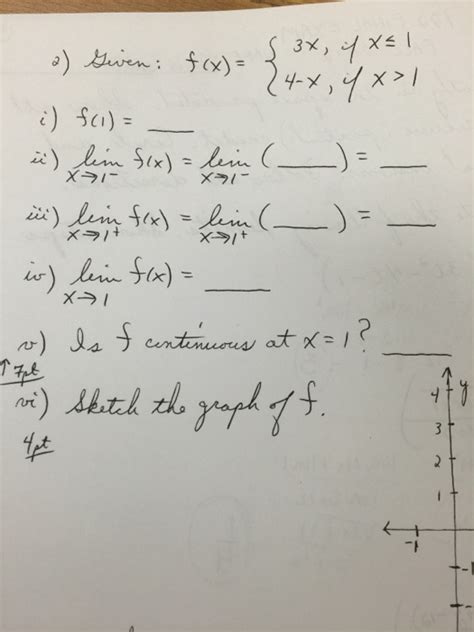 2) Given: f(x) = { 3x, if x ≤ 1
4-x, if x > 1
i) f(1) = ____
ii) lim x→1⁻ f(x) = lim x→1⁻ (____) = ____
iii) lim x→1⁺ f(x) = lim x→1⁺ (____) = ____
iv) lim x→1 f(x) = ____
v) Is f continuous at x = 1? ____
↑ 7pt
vi) Sketch the graph of f.
4pt
4 y
3
2
1
-1
-1